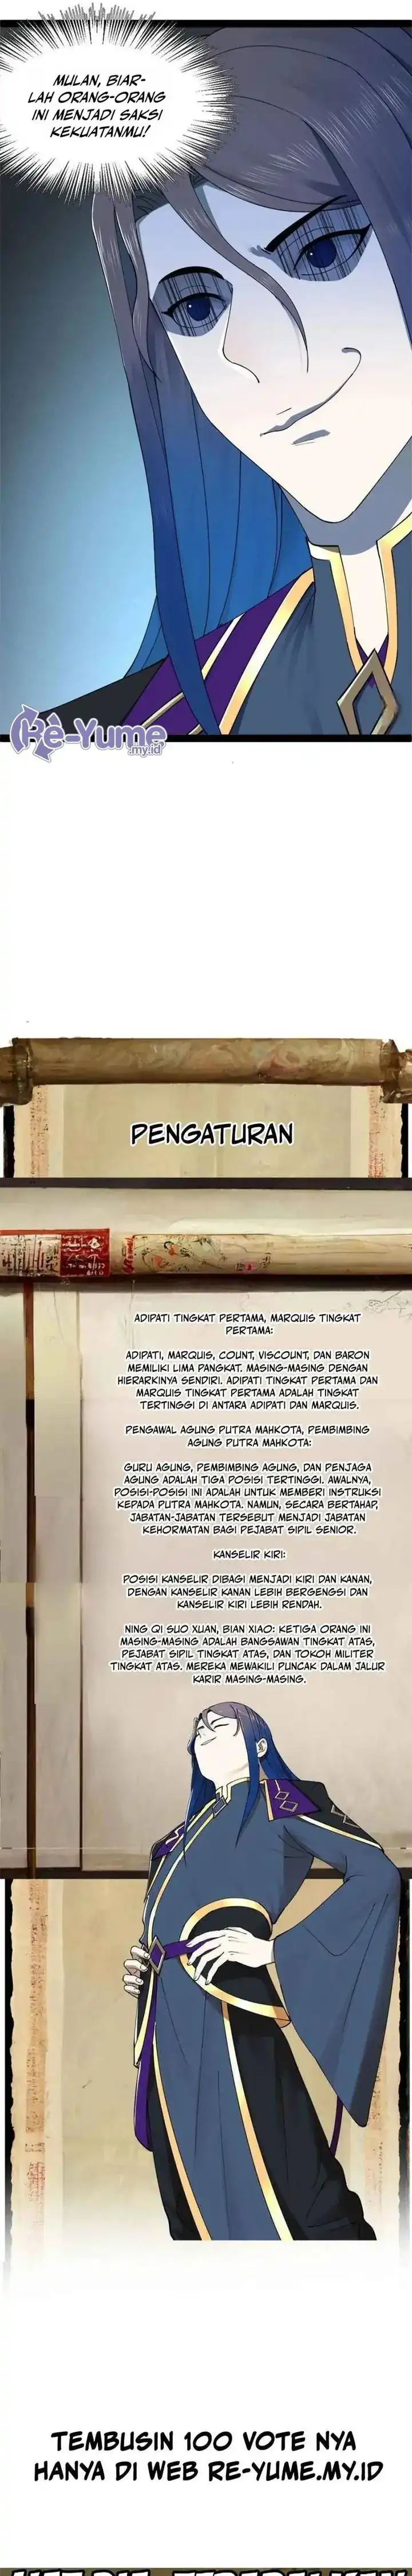 MULAN, BIAR-
LAH ORANG-ORANG
INI MENJADI SAKSI
KEKUATANMU!
Re-Yume
.my.id
PENGATURAN
ADIPATI TINGKAT PERTAMA, MARQUIS TINGKAT
PERTAMA:
ADIPATI, MARQUIS, COUNT, VISCOUNT, DAN BARON
MEMILIKI LIMA PANGKAT. MASING-MASING DENGAN
HIERARKINYA SENDIRI. ADIPATI TINGKAT PERTAMA DAN
MARQUIS TINGKAT PERTAMA ADALAH TINGKAT
TERTINGGI DI ANTARA ADIPATI DAN MARQUIS.
PENGAWAL AGUNG PUTRA MAHKOTA, PEMBIMBING
AGUNG PUTRA MAHKOTA:
GURU AGUNG, PEMBIMBING AGUNG, DAN PENJAGA
AGUNG ADALAH TIGA POSISI TERTINGGI. AWALNYA,
POSISI-POSISI INI ADALAH UNTUK MEMBERI INSTRUKSI
KEPADA PUTRA MAHKOTA. NAMUN, SECARA BERTAHAP,
JABATAN-JABATAN TERSEBUT MENJADI JABATAN
KEHORMATAN BAGI PEJABAT SIPIL SENIOR.
KANSELIR KIRI:
POSISI KANSELIR DIBAGI MENJADI KIRI DAN KANAN,
DENGAN KANSELIR KANAN LEBIH BERGENGSI DAN
KANSELIR KIRI LEBIH RENDAH.
NING QI SUO XUAN, BIAN XIAO: KETIGA ORANG INI
MASING-MASING ADALAH BANGSAWAN TINGKAT ATAS,
PEJABAT SIPIL TINGKAT ATAS, DAN TOKOH MILITER
TINGKAT ATAS. MEREKA MEWAKILI PUNCAK DALAM JALUR
KARIR MASING-MASING.
TEMBUSIN 100 VOTE NYA
HANYA DI WEB RE-YUME.MY.ID